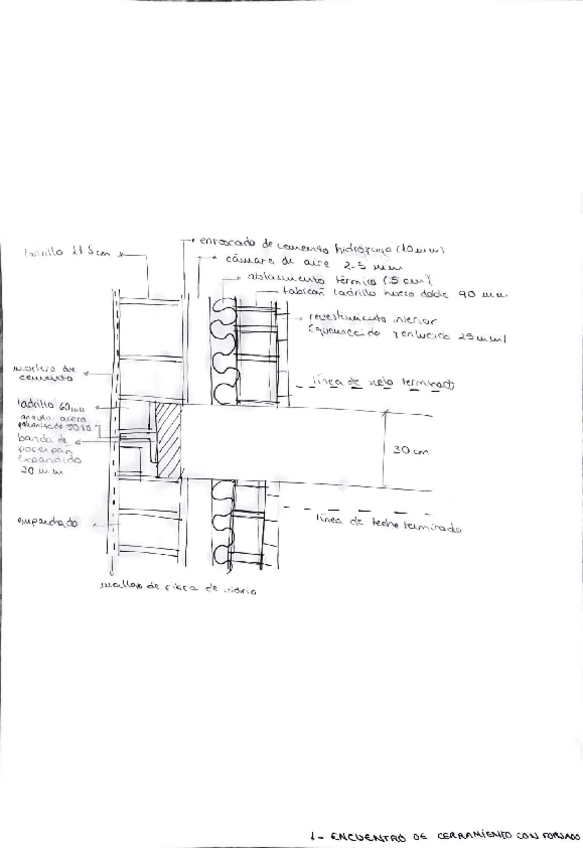 enfoscado de cemento hidrofugo (10 mm)
ladrillo 11.5 cm
cámara de aire 2-5 mm
aislamiento térmico (5 cm)
tabicón ladrillo hueco doble 90 mm
revestimiento interior
(guarnecido y enlucido 25 mm)
mortero de
cemento
línea de suelo terminado
ladrillo 60 mm
angular acero
galvanizado
banda de
porexpan
expandido
20 mm
30 cm
línea de techo terminado
mallas de fibra de vidrio
1 - ENCUENTRO DE CERRAMIENTO CON FORJADO